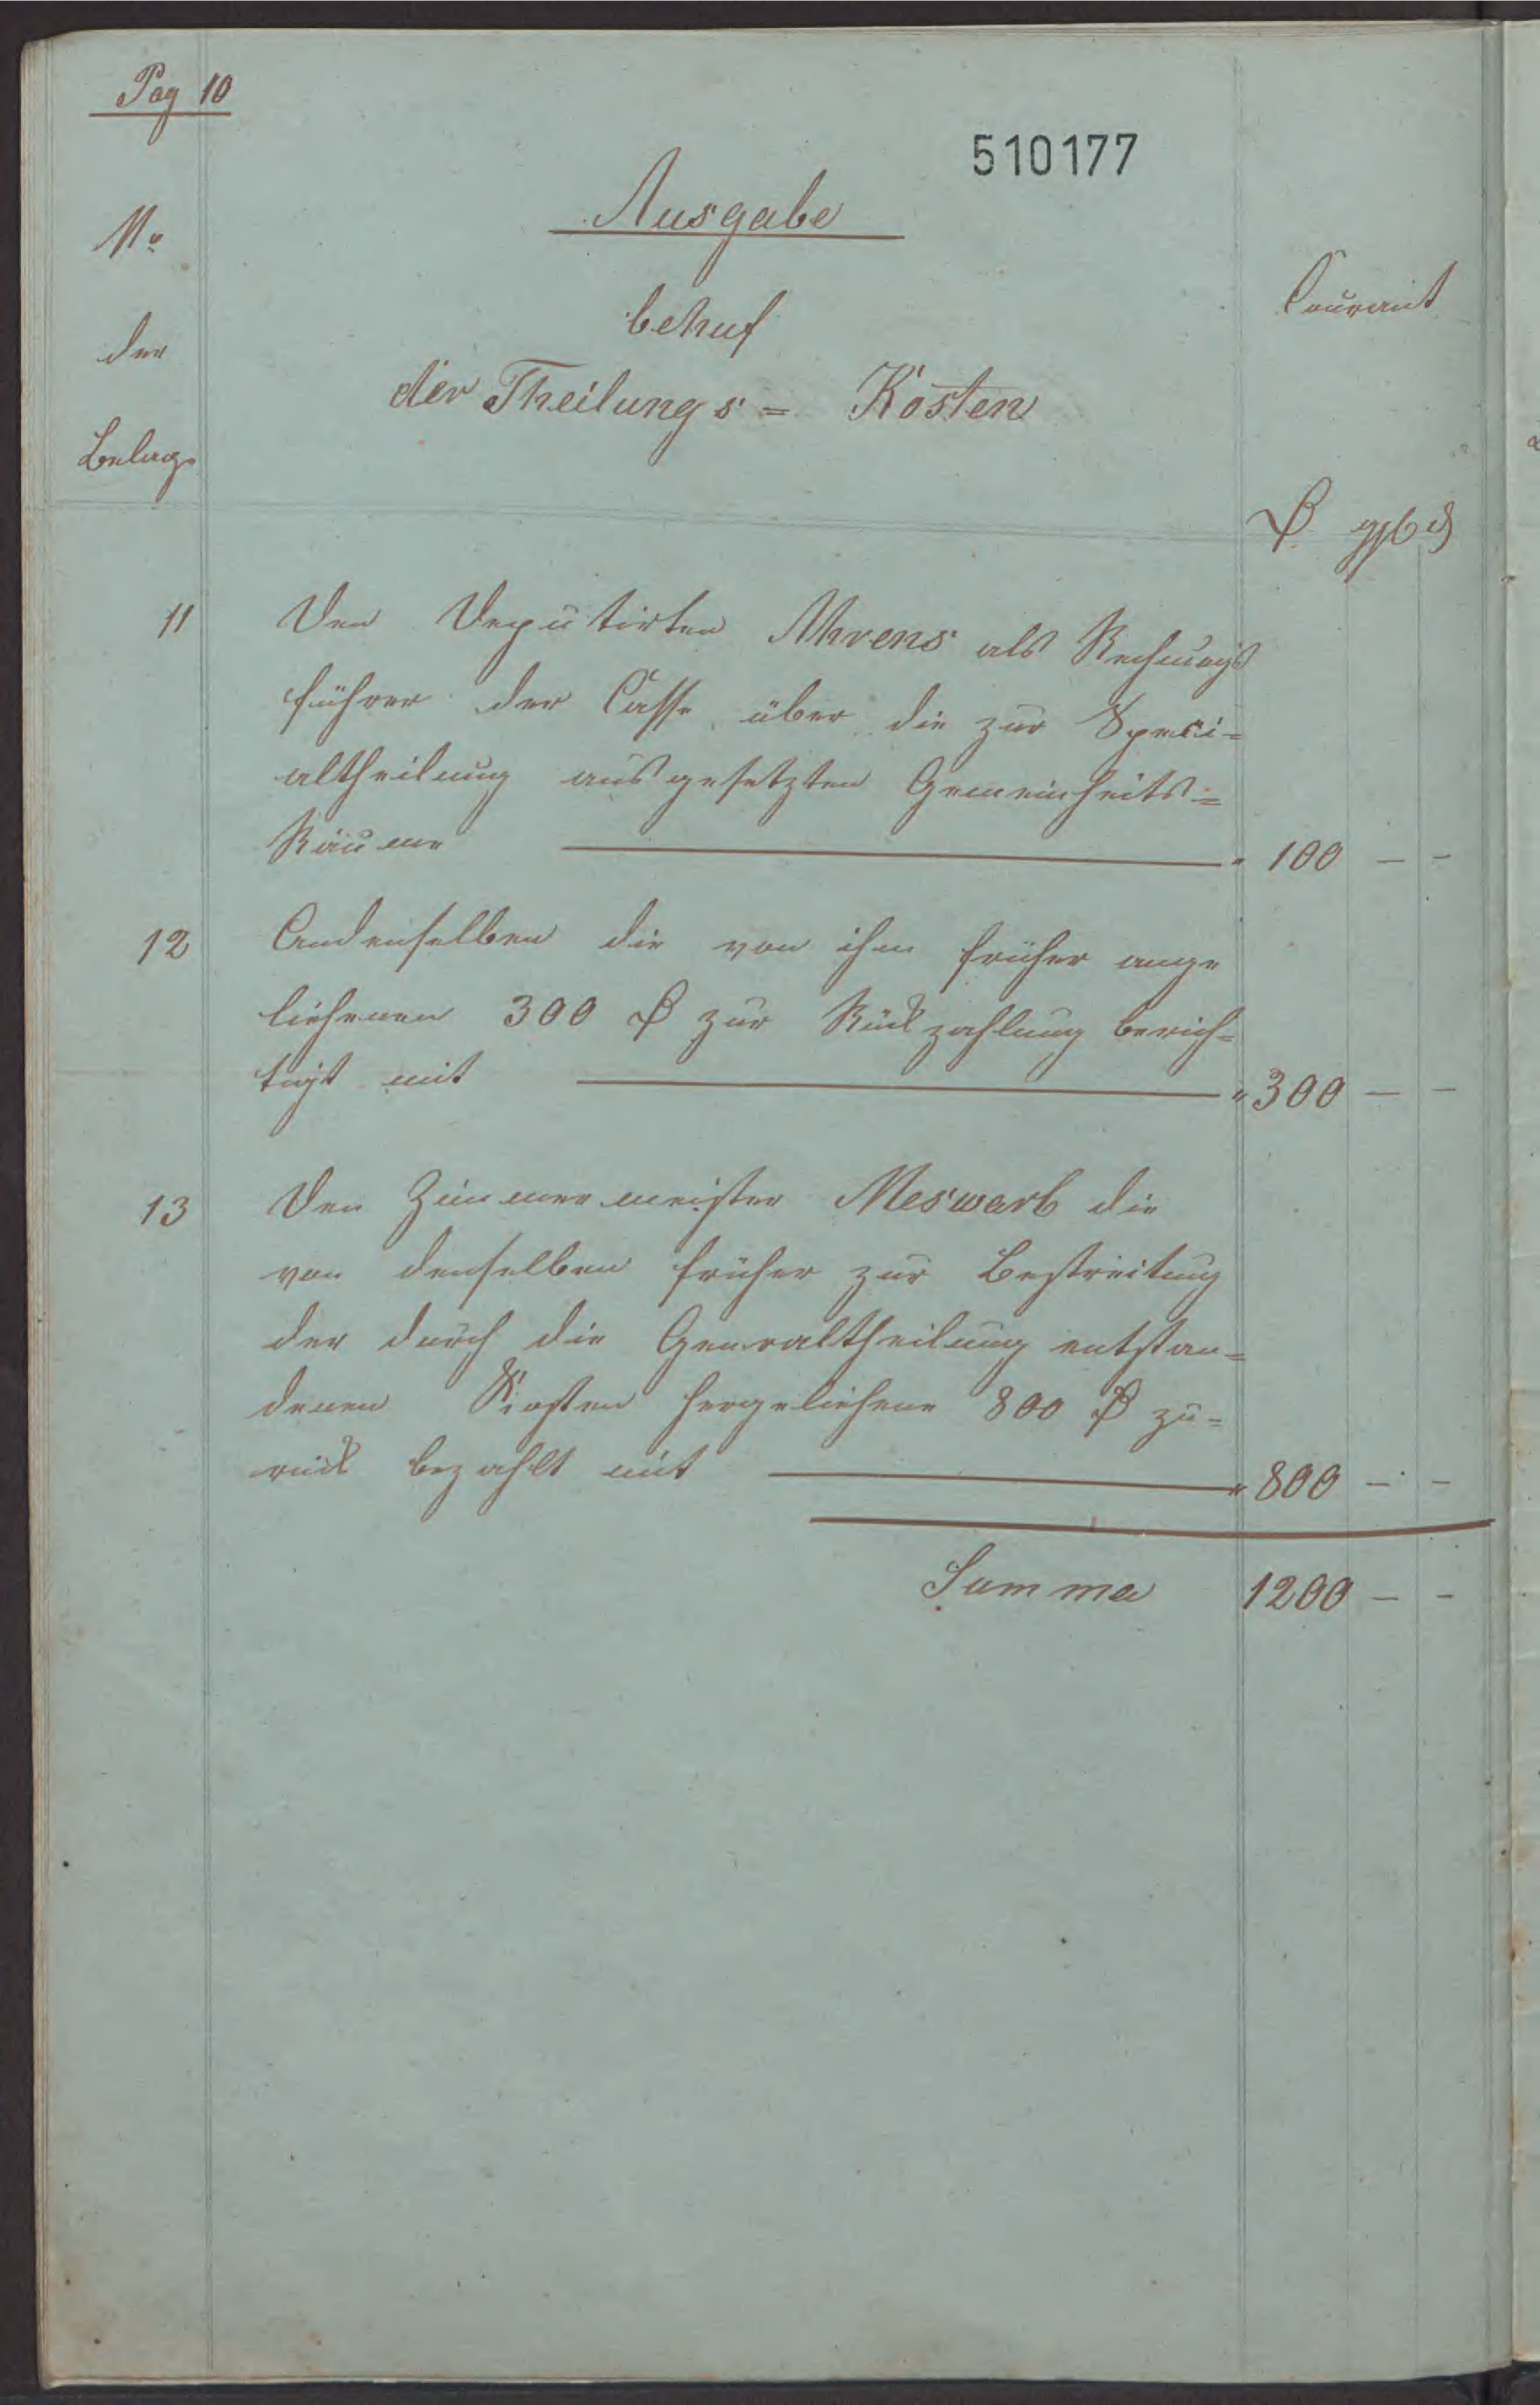 Pag 10
510177
Ausgabe
No
der
Belags
behuf
der Theilungs = Kosten
Courant
₰ ggl ₰
11 Den Deputirten Ahrens als Rechnungs
führer der Casse über die zur Speci=
altheilung ausgesetzten Gemeinheits=
Räume " 100 — -
12 Andenselben die von ihm früher ange
liehenen 300 zur Rückzahlung berich=
tigt mit " 300 — -
13 Den Zimmermeister Meswarb die
von denselben früher zur Bestreitung
der durch die Generaltheilung entstan=
denen Kosten hergeliehene 800 zu=
rück bezahlt mit " 800 — -
Summa 1200 — -